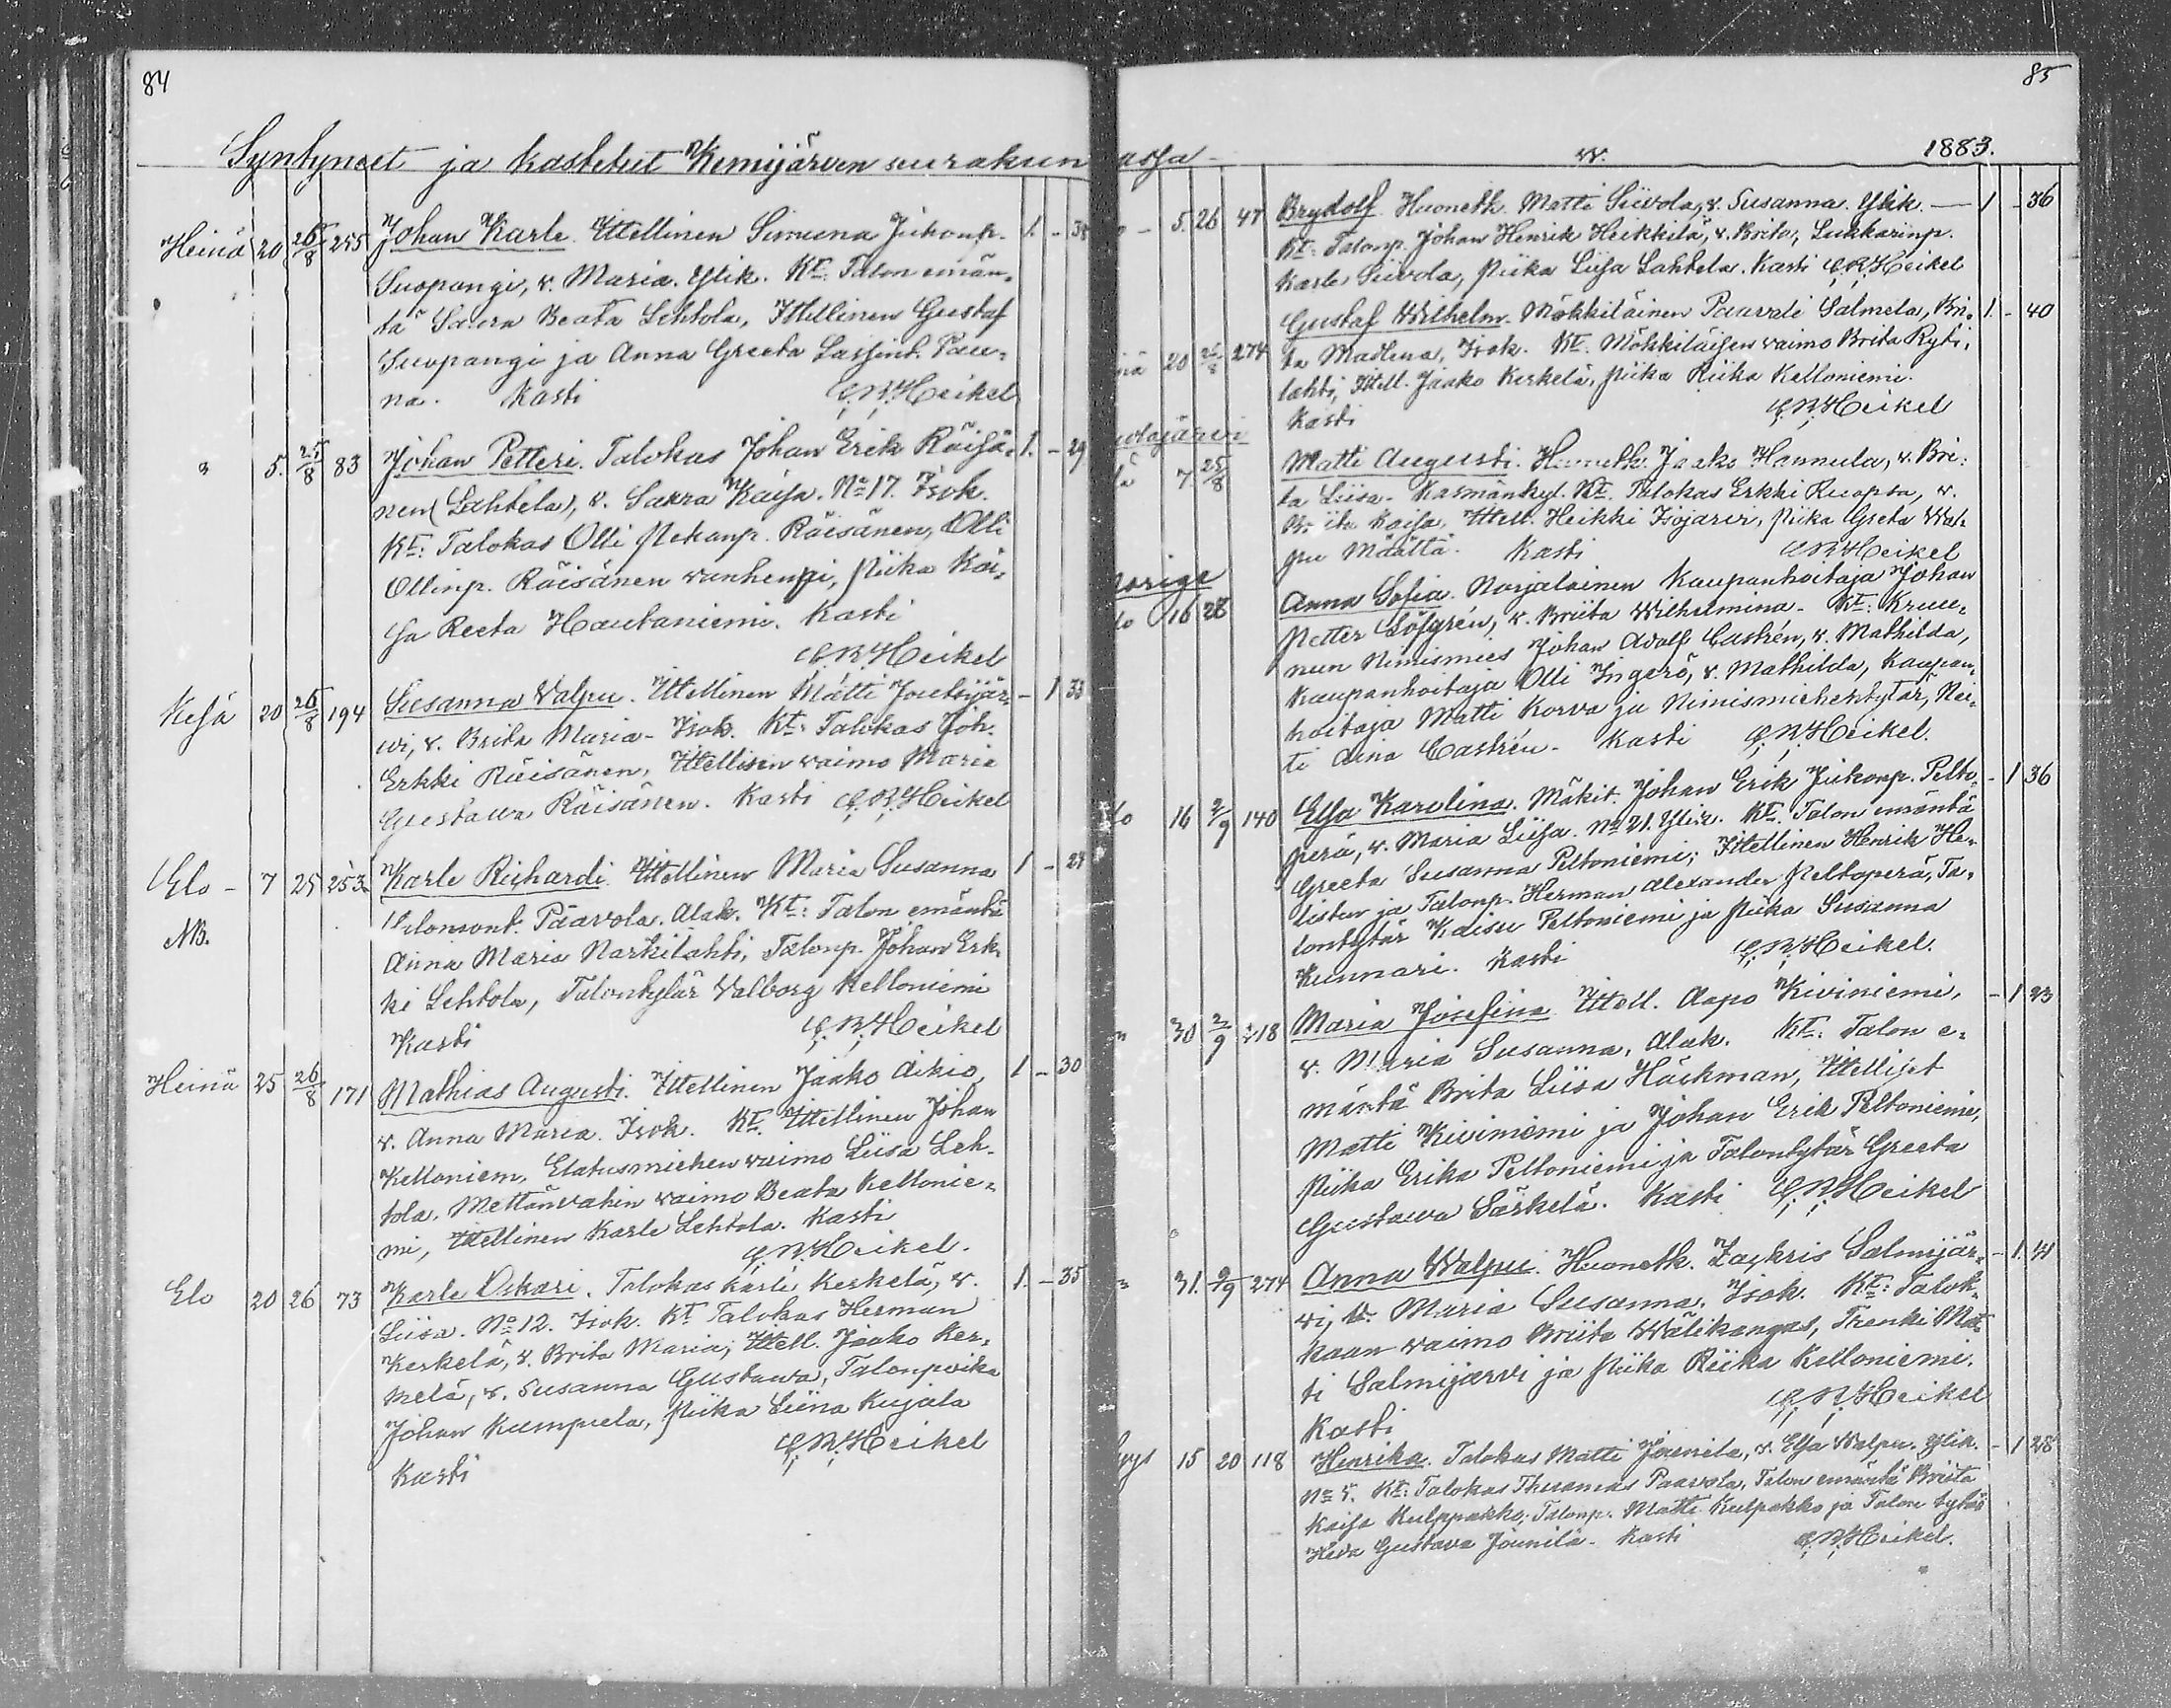 84
Syntyneet ja kastetut Kemijärven seurakun
Heinä 20 26/8 255 Johan Karle. Itellinen Simuna Juhonp. 1. - 38
Suopangi, v. Maria. Ylik. Kt: Talon emän-
tä Saara Beata Lehtola, Itellinen Gustaf
Suopangi ja Anna Greeta Lassint. Pau-
na. Kasti C.R.Heikel
" 5. 25/8 83 Johan Petteri. Talokas Johan Erik Räisä- 1. - 29
nen (Lahtela), v. Saara Kaisa. No 17. Isok.
Kt: Talokas Olli Pekanp. Räisänen, Olli
Ollinp. Räisänen vanhempi, Piika Kai-
sa Reeta Hautaniemi. Kasti
C.R.Heikel
Kesä 20 26/8 194 Susanna Valpu. Itellinen Matti Joutsijär- - 1 33
wi, v. Brita Maria - Isok. Kt: Talokas Joh.
Erkki Räisänen, Itellisen waimo Maria
Gustawa Räisänen. Kasti C.R.Heikel
Elo - 7 25 253 Karle Richardi. Itellinen Maria Susanna 1 - 27
NB. Salomont. Paavola. Alak. Kt: Talon emäntä
Anna Maria Narkilahti, Talonp. Johan Erk-
ki Lehtola, Talontytär Valborg Kelloniemi
Kasti C.R.Heikel
Heinä 25 26/8 171 Mathias Augusti. Itellinen Jaako Aikio, 1 - 30
v. Anna Maria. Isok. Kt. Itellinen Johan
Kelloniem, Elatusmiehen waimo Liisa Leh-
tola. Mettänvahin waimo Beata Kellonie-
mi, Itellinen Karle Lehtola. Kasti
C.R.Heikel.
Elo 20 26 73 Karle Oskari. Talokas Karle Kerkelä, v. 1. - 35
Liisa. No 12. Isok. Kt Talokas Herman
Kerkelä, v. Brita Maria; Itell. Jaako Ker-
kelä, v. Susanna Gustawa, Talonpoika
Johan Kumpula, Piika Liina Kujala
Kasti C.R.Heikel
85
assa - v. 1883.
5. 26 47 Brydolf. Huoneth. Matti Siivola, v. Susanna. Ylik. - 1 - 36
Kt: Talonp. Johan Henrik Heikkilä, v. Brita, Lukkarinp.
Karle Siivola, Piika Liisa Lahtela. Kasti C.R.Heikel
20 26/8 274 Gustaf Wilhelm. Mökkiläinen Paavali Salmela, Bri- 1. - 40
ta Madlena, Isok. Kt. Mökkiläisen waimo Brita Ryti-
lahti, Itell. Jaako Kerkelä, Piika Riika Kelloniemi.
Kasti C.R.Heikel
7 25/8 Matti Augusti. Huoneth. Jaako Hannula, v. Bri-
ta Liisa - Kasmänkyl. Kt. Talokas Erkki Ruopsa, v.
Brita Kaisa, Itell. Heikki Isojarvi, Piika Greta Wal-
pu Määttä. Kasti C.R.Heikel
16 28 Anna Sofia. Norjalainen Kaupanhoitaja Johan
Petter Löfgrén, v. Briita Wilhelmina - Kt: Kruu-
nun Nimismies Johan Adolf Castrén, v. Mathilda,
Kaupanhoitaja Olli Ingerö, v. Mathilda, Kaupan-
hoitaja Matti Korva ja Nimismiehentytär, Nei-
ti Aina Castrén - Kasti C.R.Heikel.
lo 16 2/9 140 Elsa Karolina. Mäkit. Johan Erik Juhonp. Pelto- - 1 36
perä, v. Maria Liisa. No 21. Ylik. Kt. Talon emäntä
Greeta Susanna Peltoniemi; Itellinen Henrik He-
listen ja Talonp. Herman Alexander Peltoperä, Ta-
lontytär Kaisu Peltoniemi ja Piika Susanna
Kunnari. Kasti C.R.Heikel.
" 30 2/9 218 Maria Josefina Itell. Aapo Kiviniemi, - 1 23
v. Maria Susanna, Alak. Kt: Talon e-
mäntä Brita Liisa Häckman, Itelliset
Matti Kiviniemi ja Johan Erik Peltoniemi,
Piika Erika Peltoniemi ja Talontytär Greeta
Gustawa Särkelä. Kasti C.R.Heikel
" 31. 9/9 274 Anna Walpu. Huoneth. Zachris Salmijär- - 1. 41
wi, v. Maria Susanna. Isok. Kt: Talok-
kaan waimo Briita Wälikangas, Trenki Mat-
ti Salmijärvi ja Piika Riika Kelloniemi.
Kasti C.R.Heikel
yys 15 20 118 Henrika. Talokas Matti Jounila, v. Elsa Walpu. Ylik. - 1 28
No 5. Kt: Talokas Thuomas Paavola, Talon emäntä Briita
Kaisa Kulppakko, Talonp. Matti Kulpakko ja Talon tytär
Heda Gustava Jounila - Kasti C.R.Heikel.